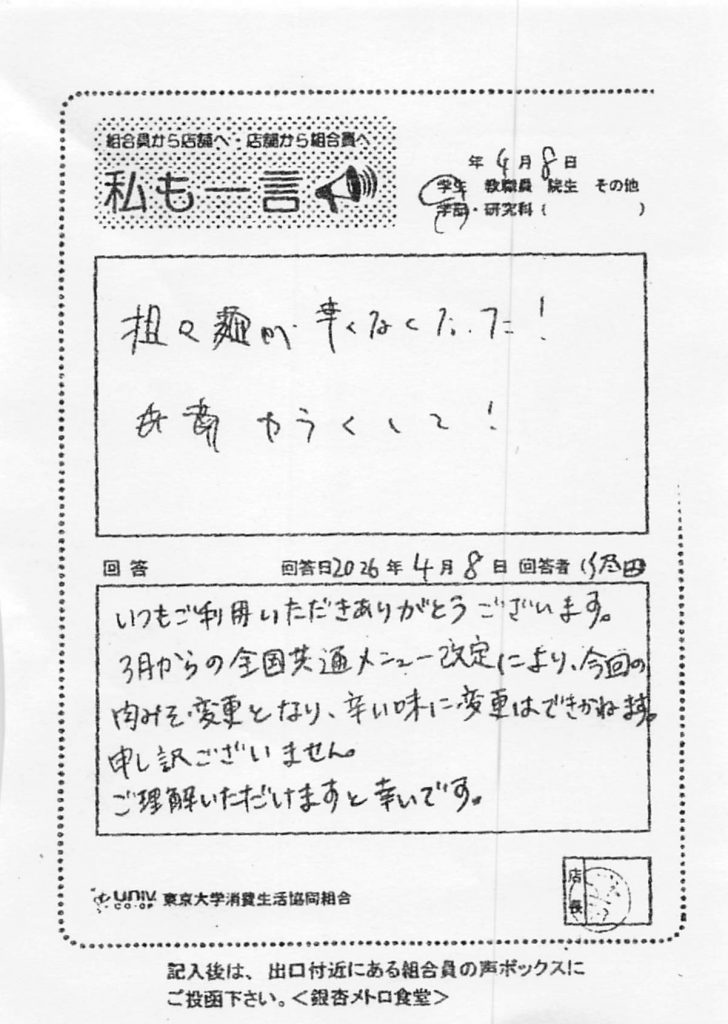 組合員から店舗へ・店舗から組合員へ
私も一言
年 4月 8日
学生 教職員 院生 その他
学部・研究科( )
担々麺が辛くなくなった!
からくして!
回答 回答日2026年 4月 8日 回答者
いつもご利用いただきありがとうございます。
3月からの全国共通メニュー改定により、今回の
肉みそ変更となり、辛い味に変更はできかねます。
申し訳ございません。
ご理解いただけますと幸いです。
univ CO-OP 東京大学消費生活協同組合
店長
記入後は、出口付近にある組合員の声ボックスに
ご投函下さい。<銀杏メトロ食堂>